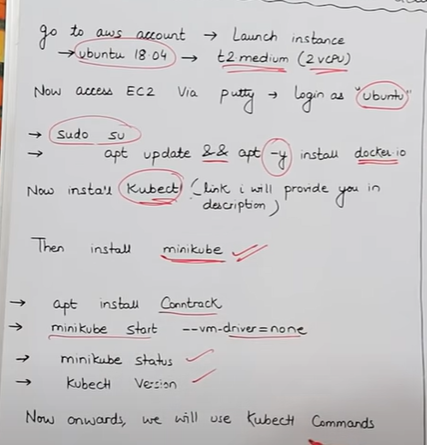 go to aws account → Launch instance
→ ubuntu 18.04 → t2.medium (2 vCPU)
Now access EC2 Via putty → login as "ubuntu"
→ sudo su
→ apt update && apt -y install docker.io
Now install Kubectl (link i will provide you in
description)
Then install minikube
→ apt install Conntrack
→ minikube start --vm-driver=none
→ minikube status
→ Kubectl Version
Now onwards, we will use Kubectl Commands